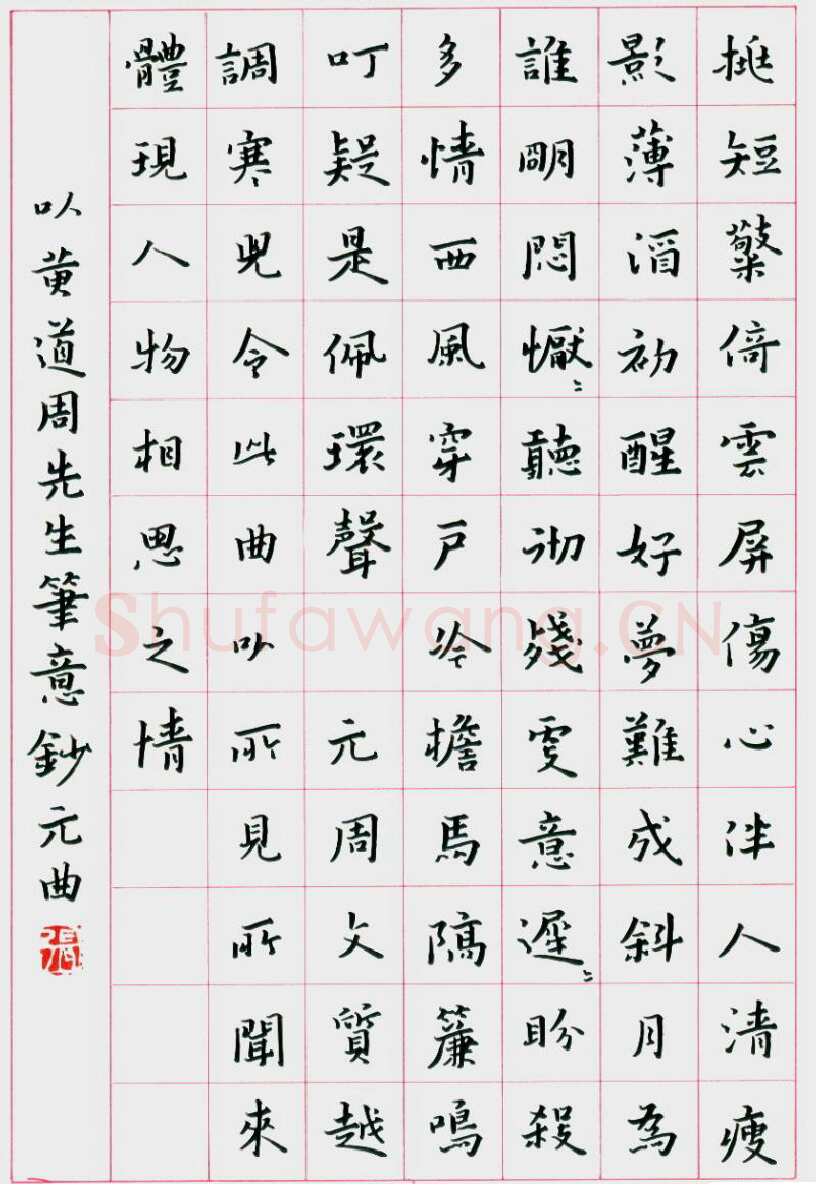 挑短檠倚雲屏傷心伴人清瘦
影薄酒初醒好夢難成斜月為
誰明悶懨〻聽徹殘更意遲〻盼殺
多情西風穿戶冷檐馬隔簾鳴
叮疑是佩環聲 元周文質越
調寒兒令此曲以所見所聞來
體現人物相思之情
以黄道周先生筆意鈔元曲
張
Shufawang.CN